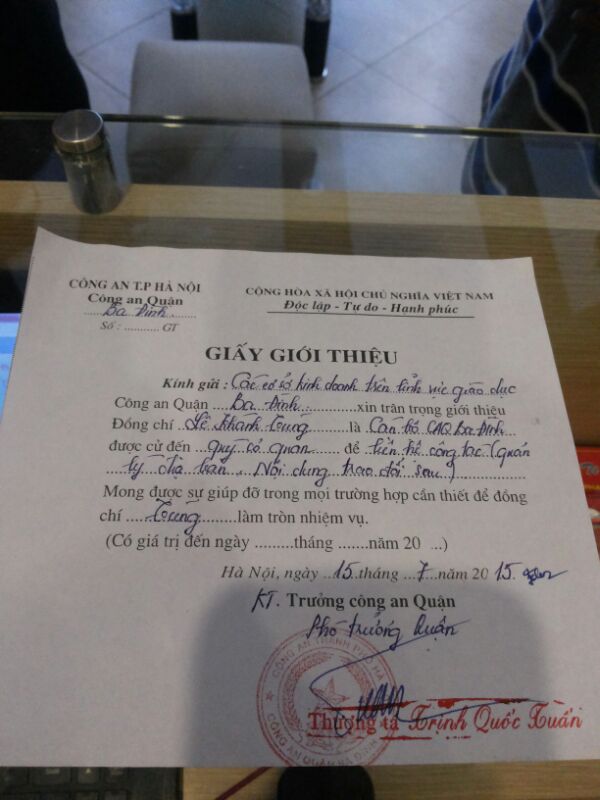 CÔNG AN T.P HÀ NỘI
Công an Quận
Ba Đình
Số : ........... GT
CỘNG HÒA XÃ HỘI CHỦ NGHĨA VIỆT NAM
Độc lập - Tự do - Hạnh phúc
GIẤY GIỚI THIỆU
Kính gửi : Các cơ sở kinh doanh trên lĩnh vực giáo dục
Công an Quận ....Ba Đình..............xin trân trọng giới thiệu
Đồng chí ..Lê Khánh Trung.......là Cán bộ CAQ Ba Đình
được cử đến ......quý cơ quan...... để liên hệ công tác (quản
lý địa bàn. Nội dung trao đổi sau)...............
Mong được sự giúp đỡ trong mọi trường hợp cần thiết để đồng
chí ....Trung.........làm tròn nhiệm vụ.
(Có giá trị đến ngày .........tháng .......năm 20 ...)
Hà Nội, ngày ..15..tháng ...7..năm 2015.
KT. Trưởng công an Quận
Phó trưởng Quận
CÔNG AN THÀNH PHỐ HÀ
CÔNG AN QUẬN BA ĐÌNH
Thượng tá Trịnh Quốc Tuấn